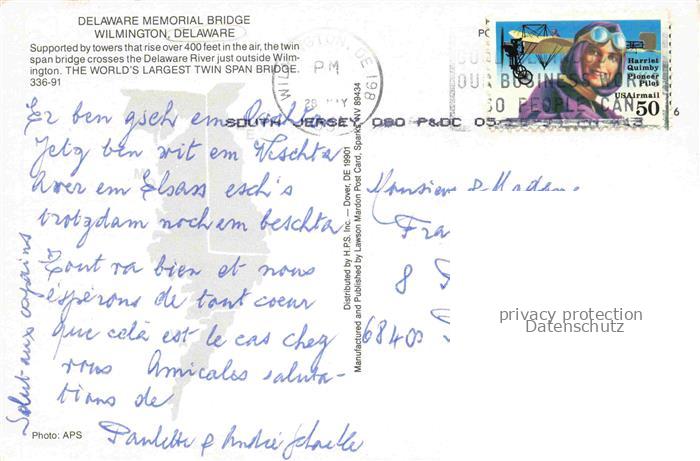 DELAWARE MEMORIAL BRIDGE
WILMINGTON, DELAWARE
Supported by towers that rise over 400 feet in the air, the twin
span bridge crosses the Delaware River just outside Wilm-
ington. THE WORLD'S LARGEST TWIN SPAN BRIDGE.
336-91
Er ben gsch em
Jetz ben wit em Weschta
Awer em Elsass esch's
trotzdam noch em beschta
Tout va bien et nous
éspérons de tout coeur
que celà est le cas chez
vous Amicales saluta-
tions de
Paulette & André
Salut aux copains
Photo: APS
Distributed by H.P.S. Inc. — Dover, DE 19901
Manufactured and Published by Lawson Mardon Post Card, Sparks, NV 89434
PO
WILMINGTON, DE 198
PM
28 MAY
OUR BUSINESS
SO PEOPLE CAN
SOUTH JERSEY 080 P&DC 05
Harriet
Quimby
Pioneer
Pilot
USAirmail
50
6
Monsieur & Madame
Fra
8
68400
privacy protection
Datenschutz